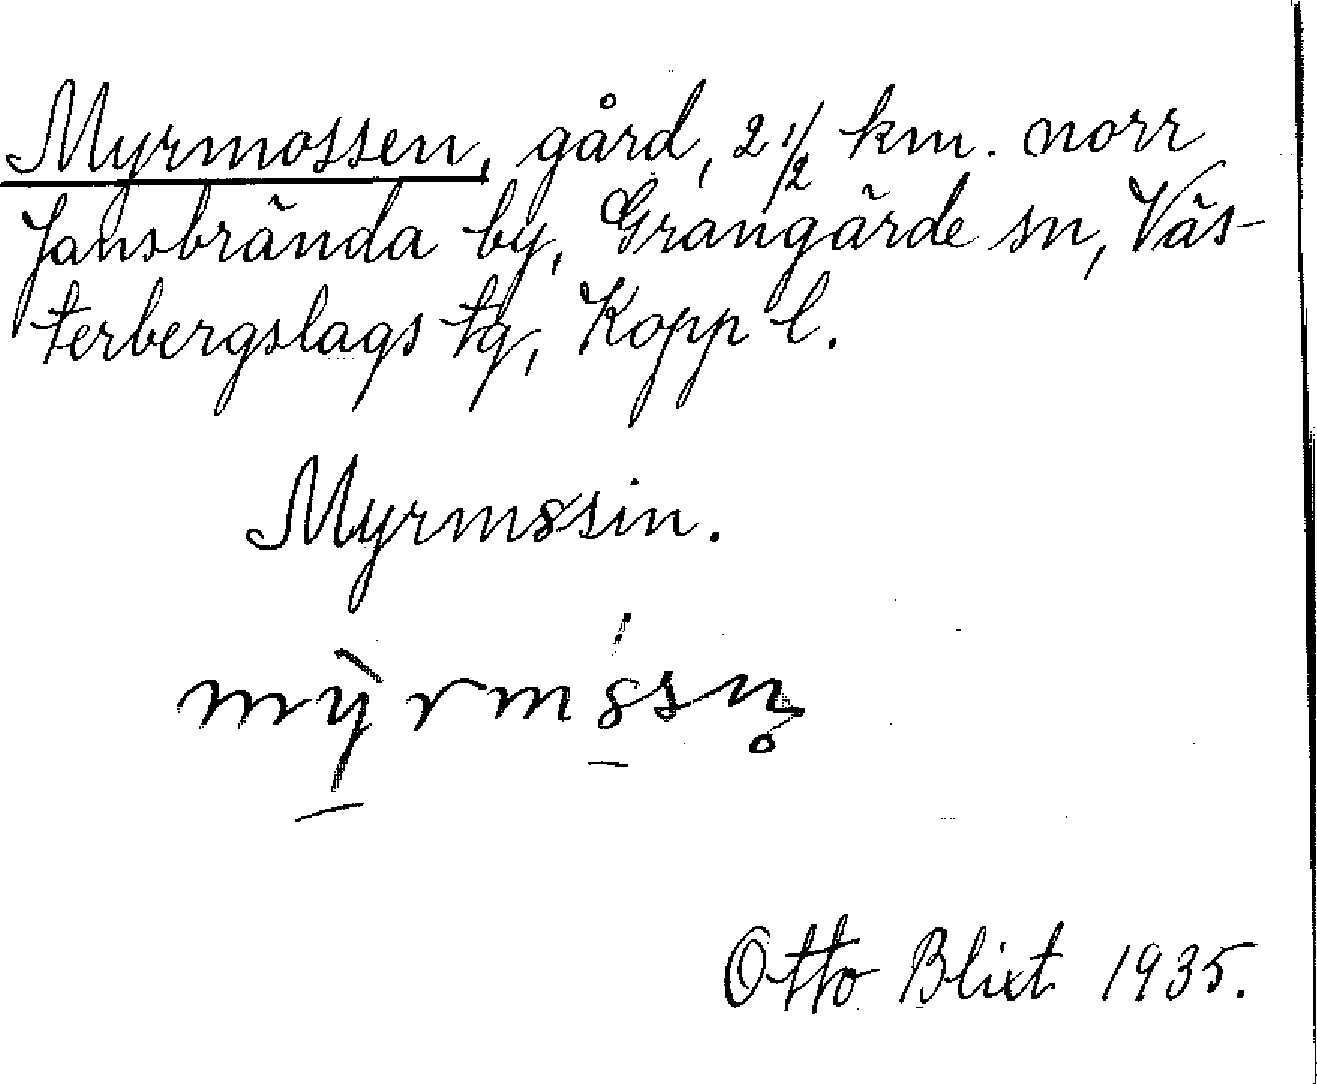 Myrmossen, gård, 2 1/2 km. norr
Jansbrända by, Grangärde sn, Väs-
terbergslags tg, Kopp l.
Myrmɞsin.
mỳ̠rmɞ̠́sn̥
Otto Blixt 1935.